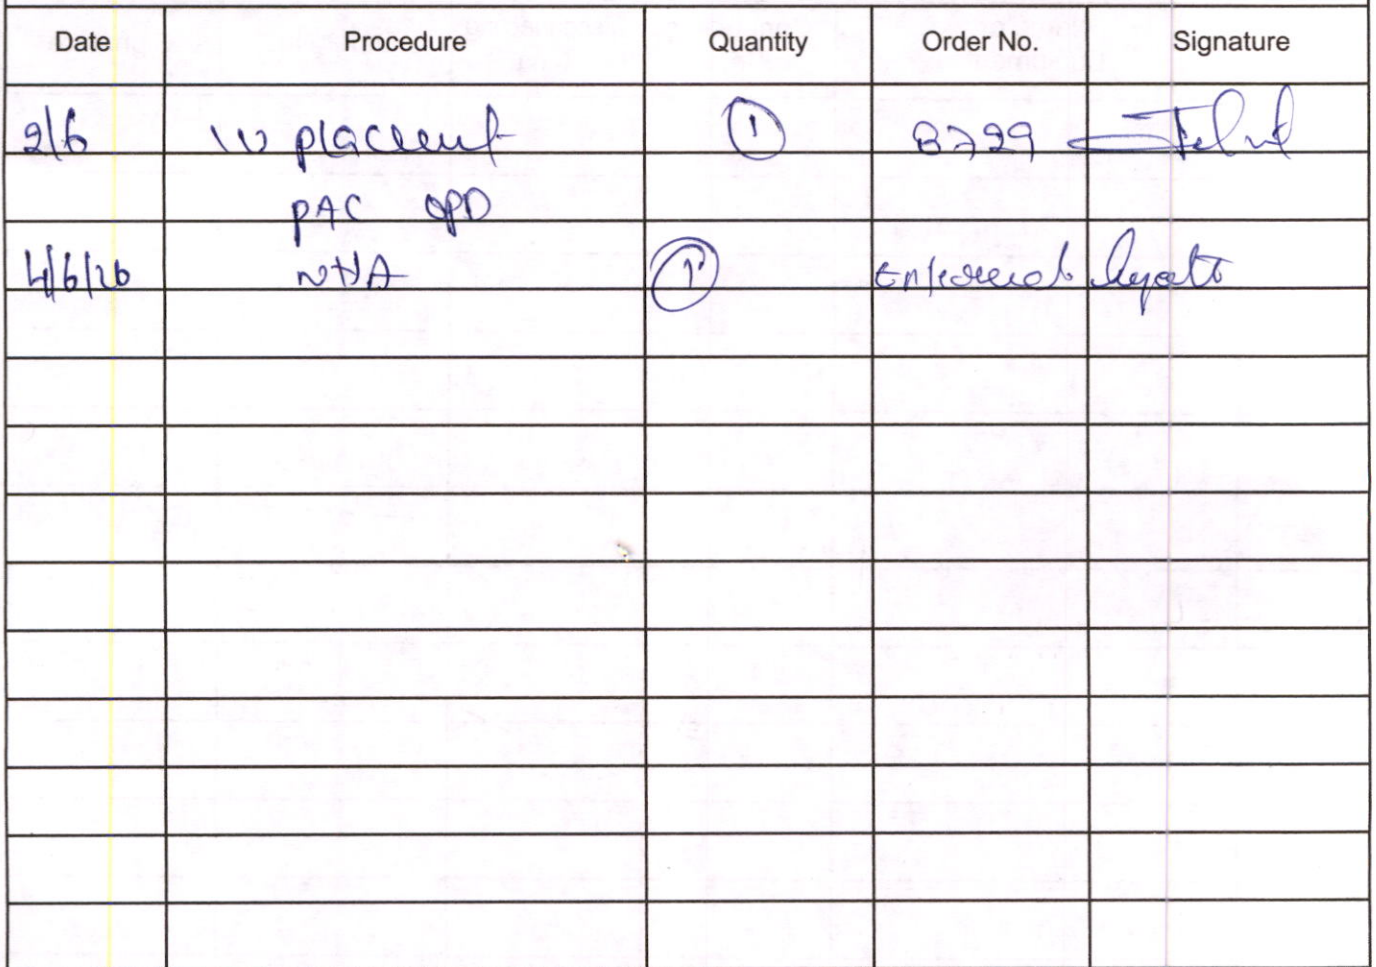 Date Procedure Quantity Order No. Signature
2/6 IV placement 1 8729
PAC OPD
4/6/26 NHA 1